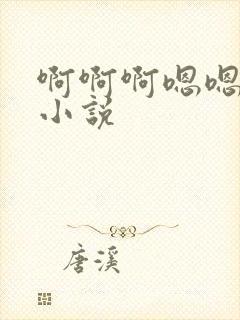 啊啊啊嗯嗯
小说
唐溪